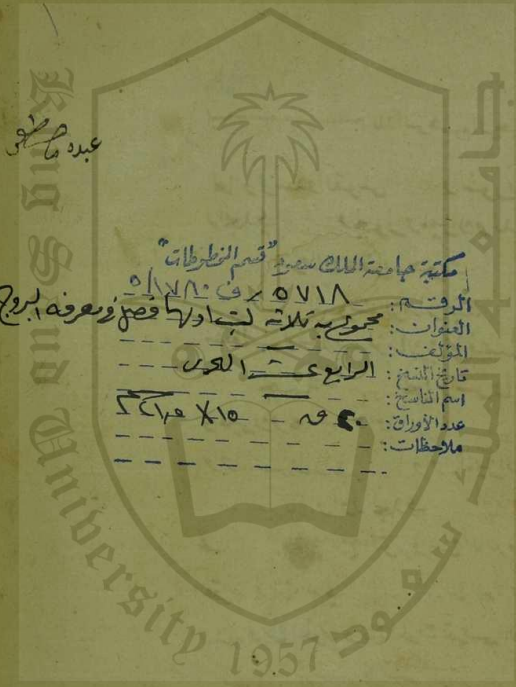 عبده
مكتبة جامعة الملك سعود "قسم المخطوطات"
الرقم: ٥٧١٨ ف ١٧٨٠/٥
العنوان: مجموع به ثلاثة كتب اولها فصل في معرفة البروج
المؤلف:
تاريخ النسخ: الرابع عشر الهجري
اسم الناسخ:
عدد الأوراق: ٢٠ ق ١٥ X ٢١٫٥
ملاحظات:
King Saud University
1957
جامعة الملك سعود